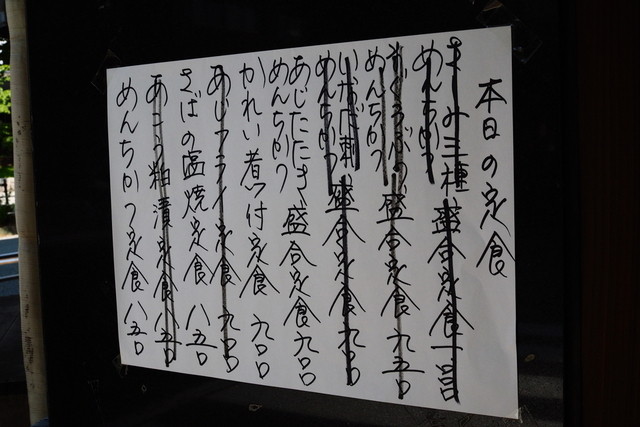 本日の定食
さしみ三種
めんちかつ
盛合定食
まぐろぶつ
めんちかつ
盛合定食 九五〇
いなだ刺
めんちかつ
盛合定食 九〇〇
あじたたき
めんちかつ
盛合定食 九〇〇
かれい煮付定食 九〇〇
あじフライ定食 九〇〇
さばの塩焼定食 八五〇
あこう粕漬定食 八五〇
めんちかつ定食 八五〇